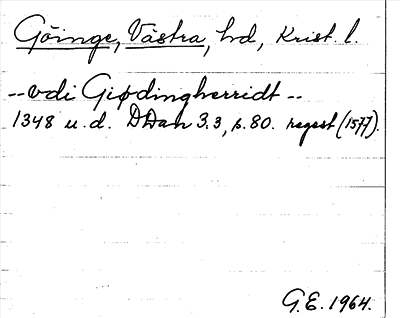 Göinge, Västra, hd, Krist. l.
--vdi Giødingherridt--
1348 u.d. DDan 3.3, s.80. regest (1577).
G.E. 1964.